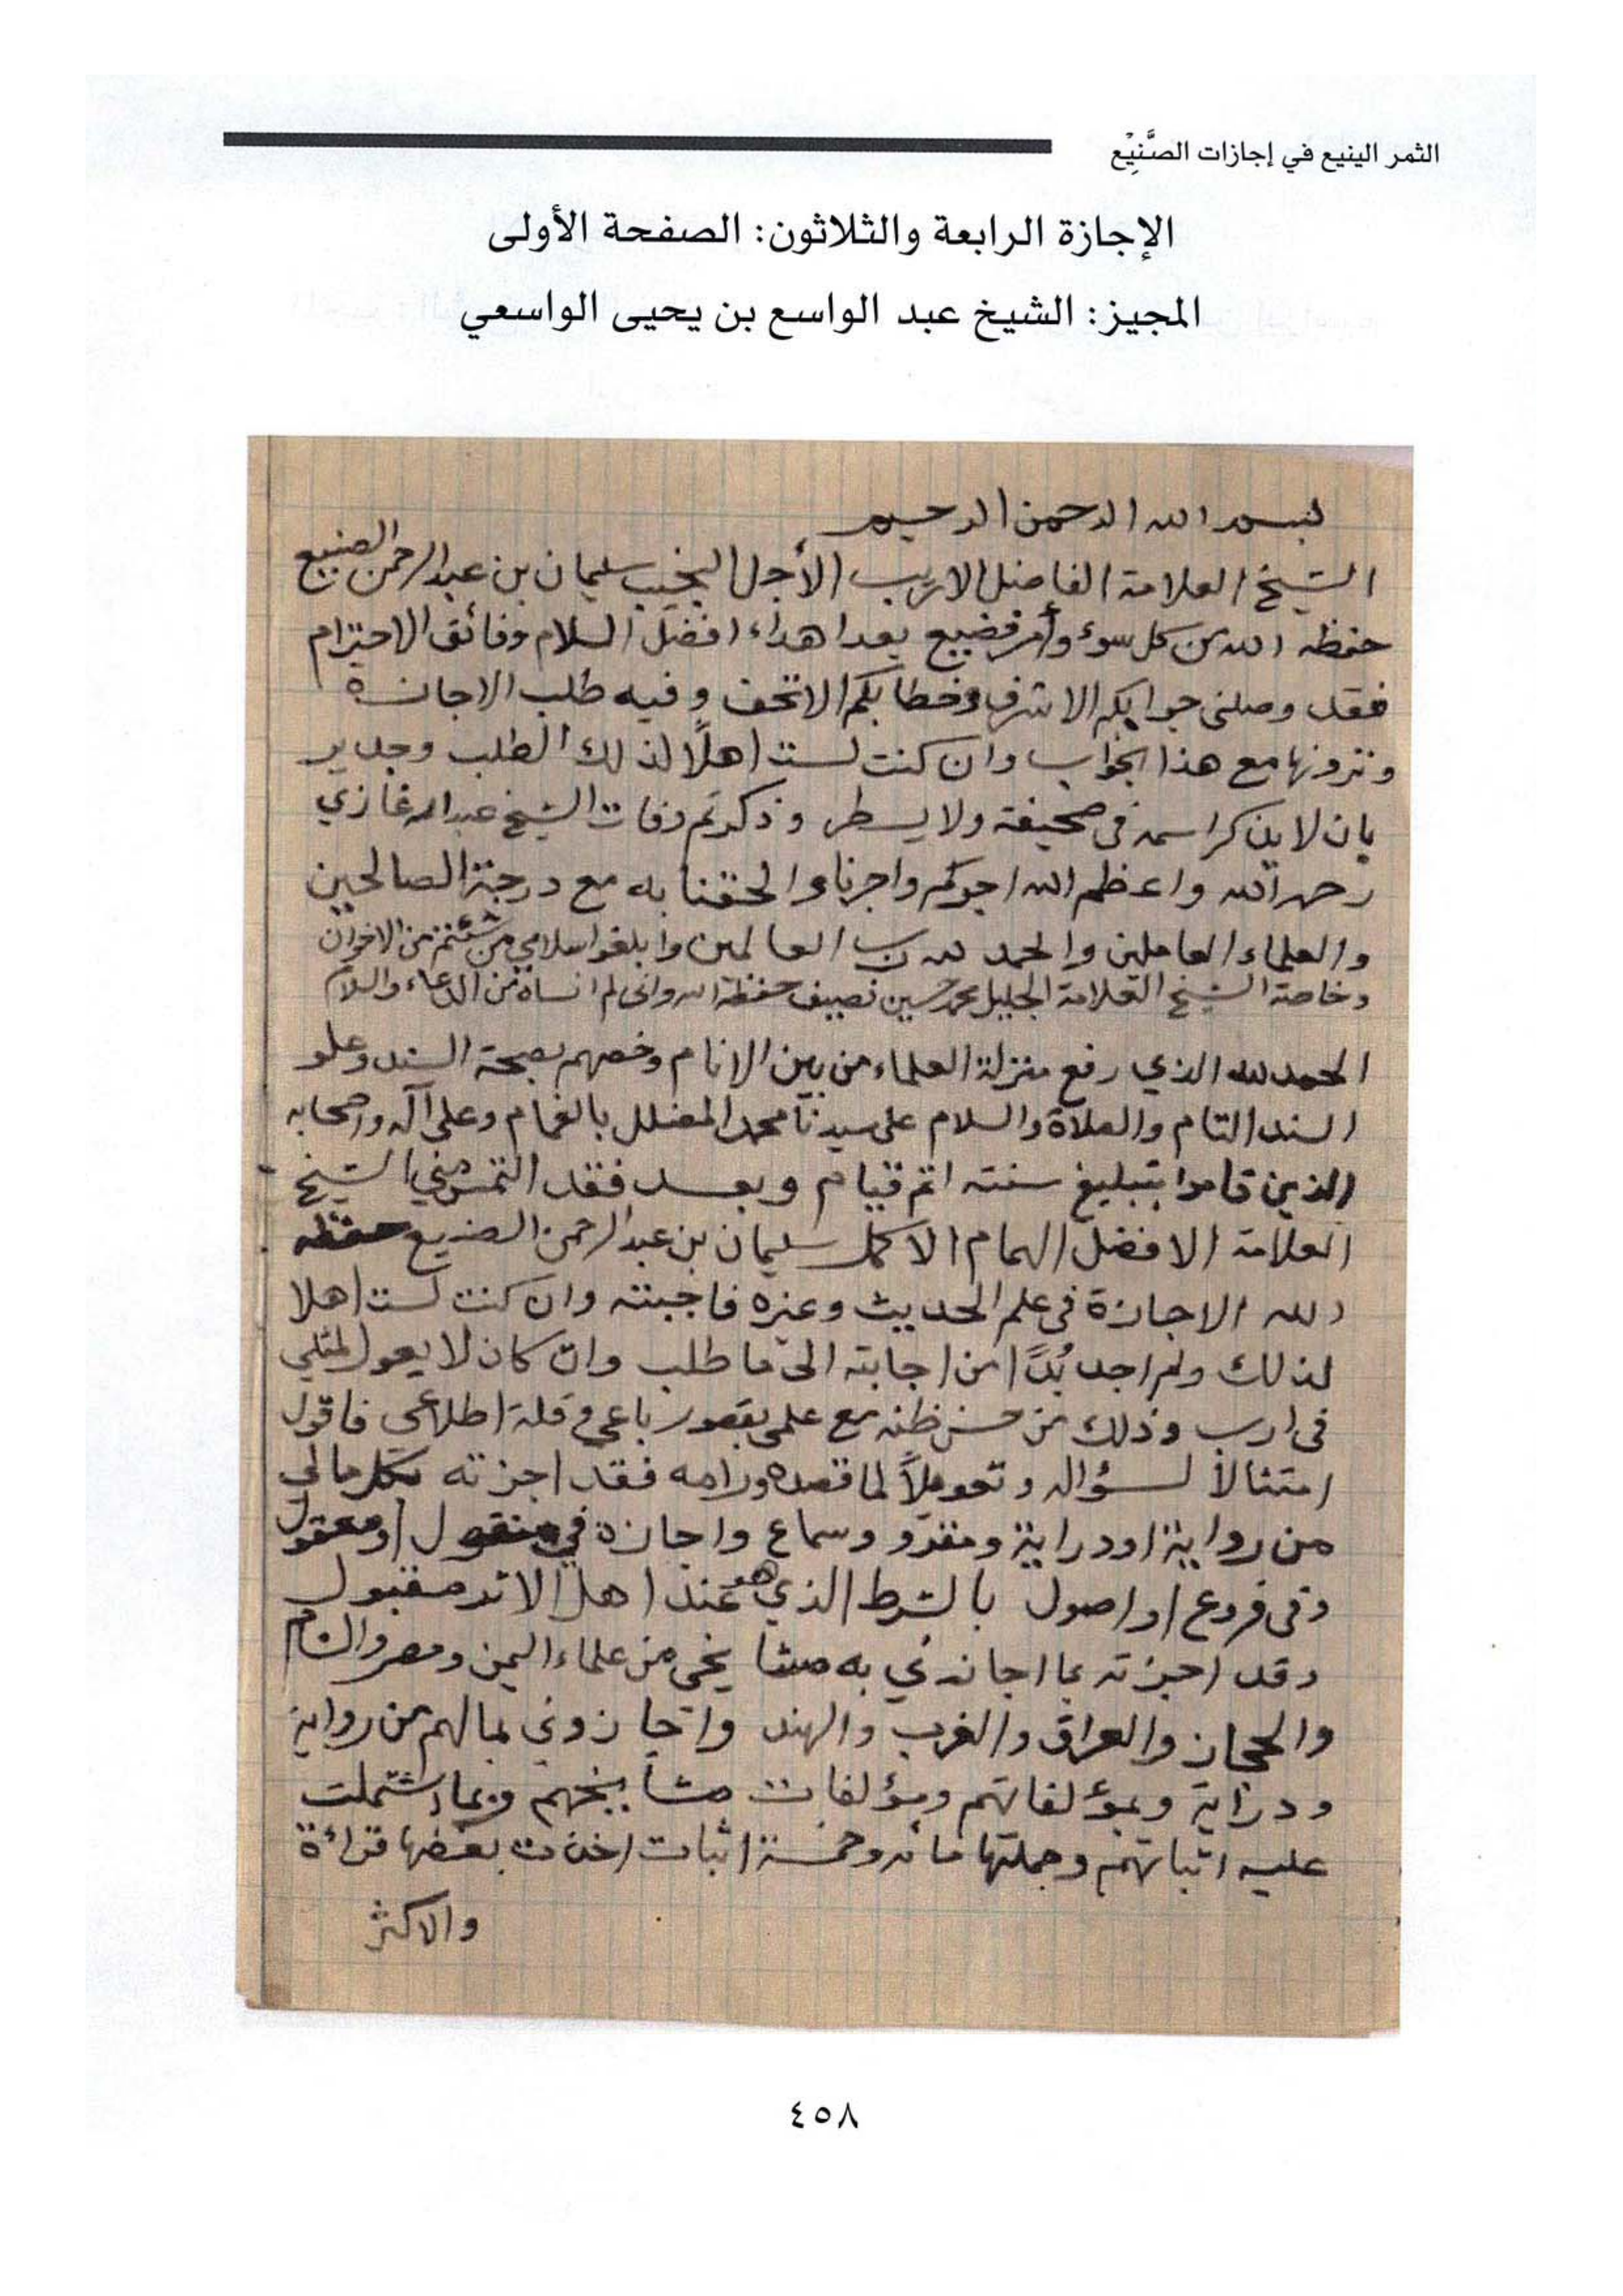 الثمر الينيع في إجازات الصَّنِيْع
الإجازة الرابعة والثلاثون: الصفحة الأولى
المجيز: الشيخ عبد الواسع بن يحيى الواسعي
بسم الله الرحمن الرحيم
الشيخ العلامة الفاضل الاريب الأجل النجيب سليمان بن عبد الرحمن الصنيع
حفظه الله من كل سوء وأمر فضيع بعد اهداء افضل السلام وفائق الاحترام
فقد وصلني جوابكم الاشرف وخطابكم الاتحف وفيه طلب الاجازة
وترونها مع هذا الجواب وان كنت لست اهلاً لذلك الطلب وجدير
بان لا يذكر اسمه في صحيفة ولا يسطر وذكرتم وفات الشيخ عبد الله غازي
رحمه الله واعظم الله اجركم واجرنا والحقنا به مع درجة الصالحين
والعلماء العاملين والحمد لله رب العالمين وابلغوا سلامي من شئتم من الاخوان
وخاصة الشيخ العلامة الجليل محمد حسين نصيف حفظه الله واني لم انساه من الدعاء والسلام
الحمد لله الذي رفع منزلة العلماء من بين الانام وخصهم بصحة السند وعلو
السند التام والصلاة والسلام على سيدنا محمد المضلل بالغمام وعلى آله واصحابه
الذين قاموا بتبليغ سنته اتم قيام وبعد فقد التمس مني الشيخ
العلامة الافضل الهمام الاكمل سليمان بن عبد الرحمن الصنيع حفظه
الله الاجازة في علم الحديث وغيره فاجبته وان كنت لست اهلا
لذلك ولم اجد بُدًّا من اجابته الى ما طلب وان كان لا يعول لمثلي
في ارب وذلك من حسن ظنه مع علمي بقصور باعي وقلة اطلاعي فاقول
امتثالاً لسؤاله وتعويلاً لما قصده ورامه فقد اجزته بكل مالي
من رواية او دراية ومقرو وسماع واجازة في منقول او معقول
وفي فروع او اصول بالشرط الذي هو عند اهل الاثر مقبول
وقد اجزته بما اجازني به مشايخي من علماء اليمن ومصر والشام
والحجاز والعراق والغرب والهند واجازوني بمالهم من رواية
ودراية وبمؤلفاتهم ومؤلفات مشايخهم وبما اشتملت
عليه اثباتهم وجملتها مائه وخمسة اثبات اخذت بعضها قراءة
والاكثر
٤٥٨